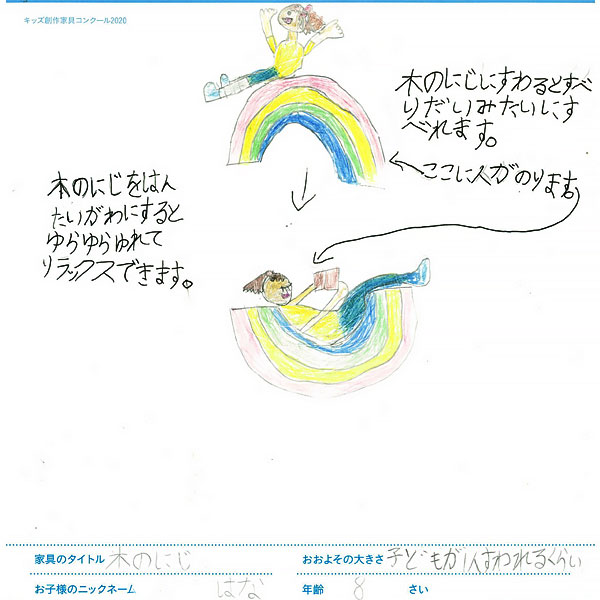 キッズ創作家具コンクール2020
木のにじにすわるとすべ
りだいみたいにす
べれます。
ここに人がのります。
木のにじをはん
たいがわにすると
ゆらゆらゆれて
リラックスできます。
家具のタイトル 木のにじ
おおよその大きさ 子どもが1人すわれるくらい
お子様のニックネーム はな
年齢 8 さい